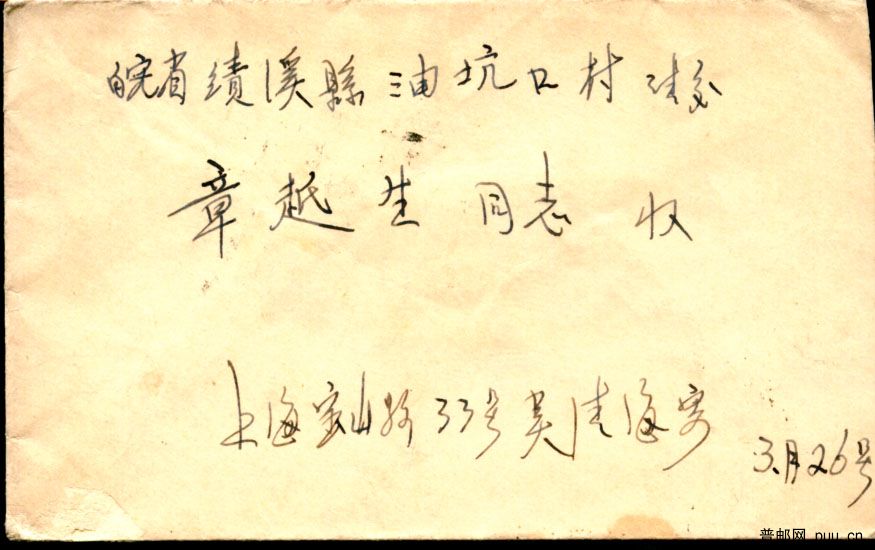 皖省绩溪縣油坑口村
章越生 同志 收
上海宝山路33号吴佳海寄
3月26号
普邮网 puu.cn